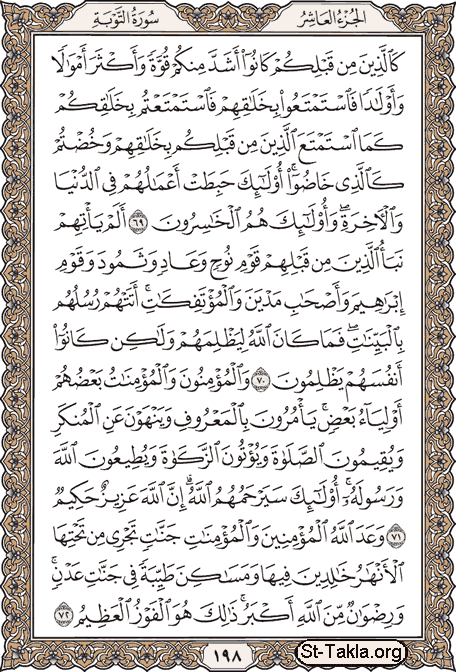 الجزء العاشر سورة التوبة
كَٱلَّذِينَ مِن قَبْلِكُمْ كَانُوٓا۟ أَشَدَّ مِنكُمْ قُوَّةً وَأَكْثَرَ أَمْوَٰلًا
وَأَوْلَٰدًا فَٱسْتَمْتَعُوا۟ بِخَلَٰقِهِمْ فَٱسْتَمْتَعْتُم بِخَلَٰقِكُمْ
كَمَا ٱسْتَمْتَعَ ٱلَّذِينَ مِن قَبْلِكُم بِخَلَٰقِهِمْ وَخُضْتُمْ
كَٱلَّذِى خَاضُوٓا۟ ۚ أُو۟لَٰٓئِكَ حَبِطَتْ أَعْمَٰلُهُمْ فِى ٱلدُّنْيَا
وَٱلْءَاخِرَةِ ۖ وَأُو۟لَٰٓئِكَ هُمُ ٱلْخَٰسِرُونَ ٦٩ أَلَمْ يَأْتِهِمْ
نَبَأُ ٱلَّذِينَ مِن قَبْلِهِمْ قَوْمِ نُوحٍ وَعَادٍ وَثَمُودَ وَقَوْمِ
إِبْرَٰهِيمَ وَأَصْحَٰبِ مَدْيَنَ وَٱلْمُؤْتَفِكَٰتِ ۚ أَتَتْهُمْ رُسُلُهُم
بِٱلْبَيِّنَٰتِ ۖ فَمَا كَانَ ٱللَّهُ لِيَظْلِمَهُمْ وَلَٰكِن كَانُوٓا۟
أَنفُسَهُمْ يَظْلِمُونَ ٧٠ وَٱلْمُؤْمِنُونَ وَٱلْمُؤْمِنَٰتُ بَعْضُهُمْ
أَوْلِيَآءُ بَعْضٍ ۚ يَأْمُرُونَ بِٱلْمَعْرُوفِ وَيَنْهَوْنَ عَنِ ٱلْمُنكَرِ
وَيُقِيمُونَ ٱلصَّلَوٰةَ وَيُؤْتُونَ ٱلزَّكَوٰةَ وَيُطِيعُونَ ٱللَّهَ
وَرَسُولَهُۥٓ ۚ أُو۟لَٰٓئِكَ سَيَرْحَمُهُمُ ٱللَّهُ ۗ إِنَّ ٱللَّهَ عَزِيزٌ حَكِيمٌ
٧١ وَعَدَ ٱللَّهُ ٱلْمُؤْمِنِينَ وَٱلْمُؤْمِنَٰتِ جَنَّٰتٍ تَجْرِى مِن تَحْتِهَا
ٱلْأَنْهَٰرُ خَٰلِدِينَ فِيهَا وَمَسَٰكِنَ طَيِّبَةً فِى جَنَّٰتِ عَدْنٍ ۚ
وَرِضْوَٰنٌ مِّنَ ٱللَّهِ أَكْبَرُ ۚ ذَٰلِكَ هُوَ ٱلْفَوْزُ ٱلْعَظِيمُ ٧٢
١٩٨
St-Takla.org